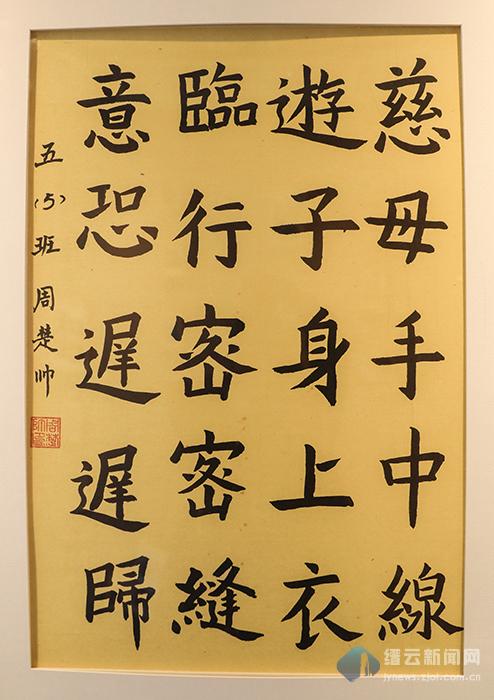 慈母手中線
遊子身上衣
臨行密密縫
意恐遲遲歸
五(5)班周楚帅
缙云新闻网
jynews.zjol.com.cn